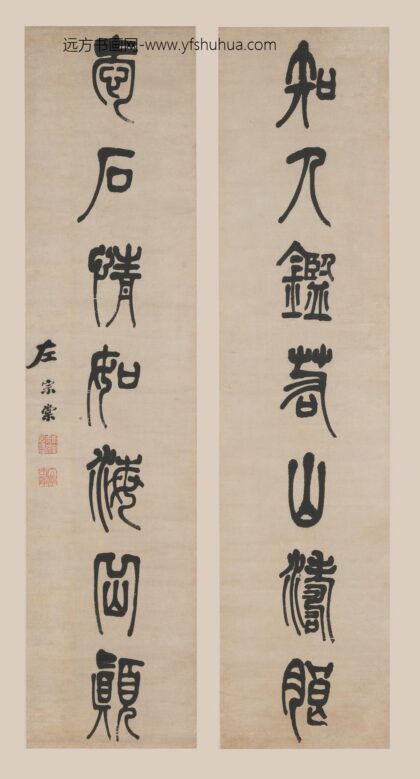 远方书画网-www.yfshuhua.com
知人鑑若山濤
愛石情如海岳顛
左宗棠